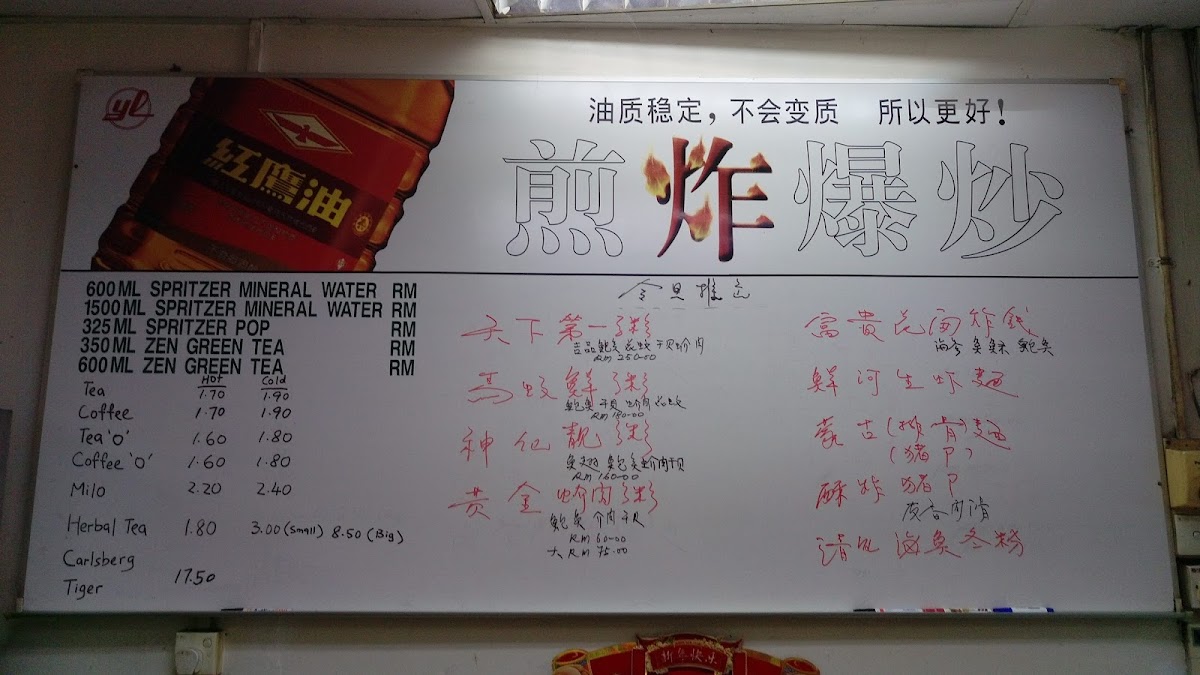 yl
红鹰油
油质稳定，不会变质 所以更好！
煎炸爆炒
600ML SPRITZER MINERAL WATER RM
1500ML SPRITZER MINERAL WATER RM
325ML SPRITZER POP RM
350ML ZEN GREEN TEA RM
600ML ZEN GREEN TEA RM
Hot Cold
Tea 1.70 1.90
Coffee 1.70 1.90
Tea 'O' 1.60 1.80
Coffee 'O' 1.60 1.80
Milo 2.20 2.40
Herbal Tea 1.80 3.00 (Small) 8.50 (Big)
Carlsberg
Tiger 17.50
今日推
天下第一粥
RM 250-00
鲜粥
RM 180-00
神仙靓粥
RM 160-00
黄金 肉粥
RM 60-00
大 RM 75-00
富贵 炸
鲜河生虾麵
蒙古 麵
酥炸猪
海 冬粉
新年快乐